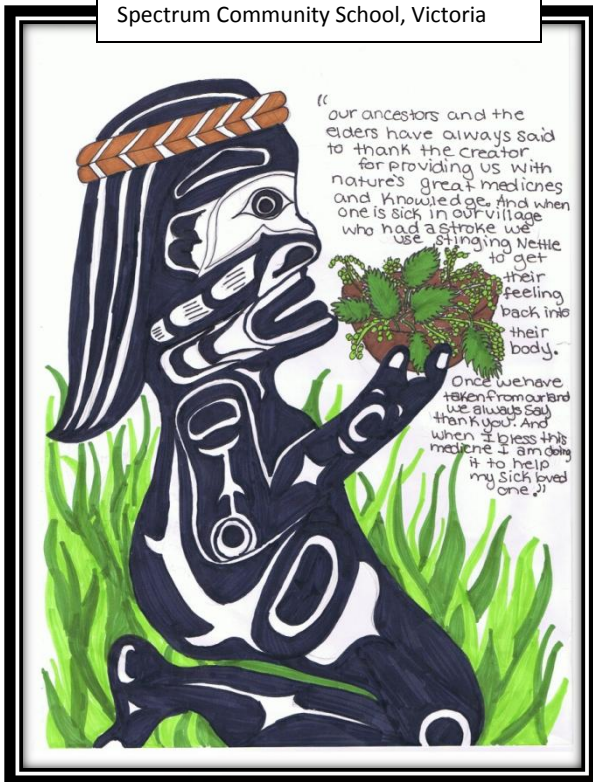 Spectrum Community School, Victoria
"our ancestors and the
elders have always said
to thank the creator
for providing us with
nature's great medicnes
and knowledge. And when
one is sick in our village
who had a stroke we
use stinging Nettle
to get
their
feeling
back into
their
body.
Once we have
taken from our land
we always say
thank you. And
when I bless this
medicne I am doing
it to help
my sick loved
one."